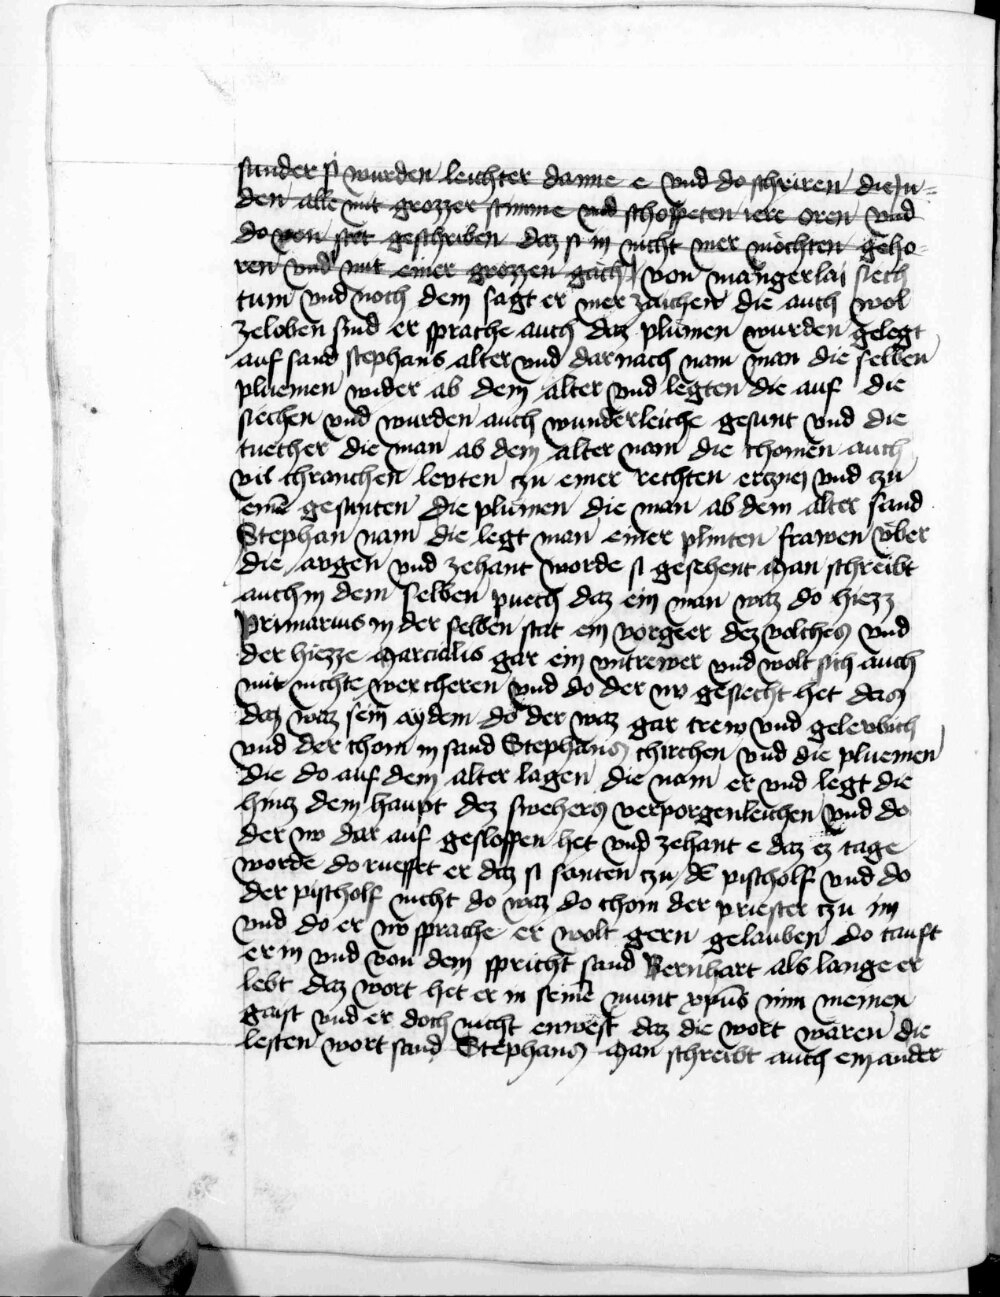 sunder si wurden leichter danne e vnd do schriren die Ju⸗
den alle mit grozzer stimme vnd schoppeten iere oren vnd
do von stet geschriben daz si in nicht mer möchten geho⸗
ren vnd mit einer grozzen gäch von mangerlai siech
tum vnd noch dem sagt er mer zaichen die auch wol
zeloben sind er sprache auch daz plümen wurden gelegt
auf sand stephans alter vnd dar nach nam man die selben
pluemen wider ab dem alter vnd legten die auf die
siechen vnd wurden auch wunderleiche gesunt vnd die
tuecher die man ab dem alter nam die chomen auch
vil chranchen levten czu einer rechten erczney vnd czu
einē gesunten die plümen die man ab dem alter sand
Stephan nam die legt man einer plinten frawen vber
die augen vnd zehant worde si gesehent Man schreibt
auch in dem selben puech daz ein man waz do hiezz
Primarius in der selben stat ein vorgeer dez volches vnd
der hiezze Marcialis gar ein vntrewer vnd wolt sich auch
mit nichte wercheren vnd do der nv gesiecht het das
daz waz sein aydem do der waz gar trew vnd gelewbich
vnd der chom in sand Stephans chirchen vnd die pluemen
die do auf dem alter lagen die nam er vnd legt die
hincz dem haupt dez swehers verporgenleichen vnd do
der nv dar auf gesloffen het vnd zehant e daz ez tage
worde do rueffet er daz si santen czu dē pischolf vnd do
der pischolf nicht do waz do chom der priester czu im
vnd do er nv sprache er wolt gern gelauben do tauft
er in vnd von dem spricht sand Bernhart als lange er
lebt daz wort het er in seinē munt xpūs nim meinen
gaist vnd er doch nicht enwest daz die wort waren die
lesten wort sand Stephans Man schreibt auch ein ander